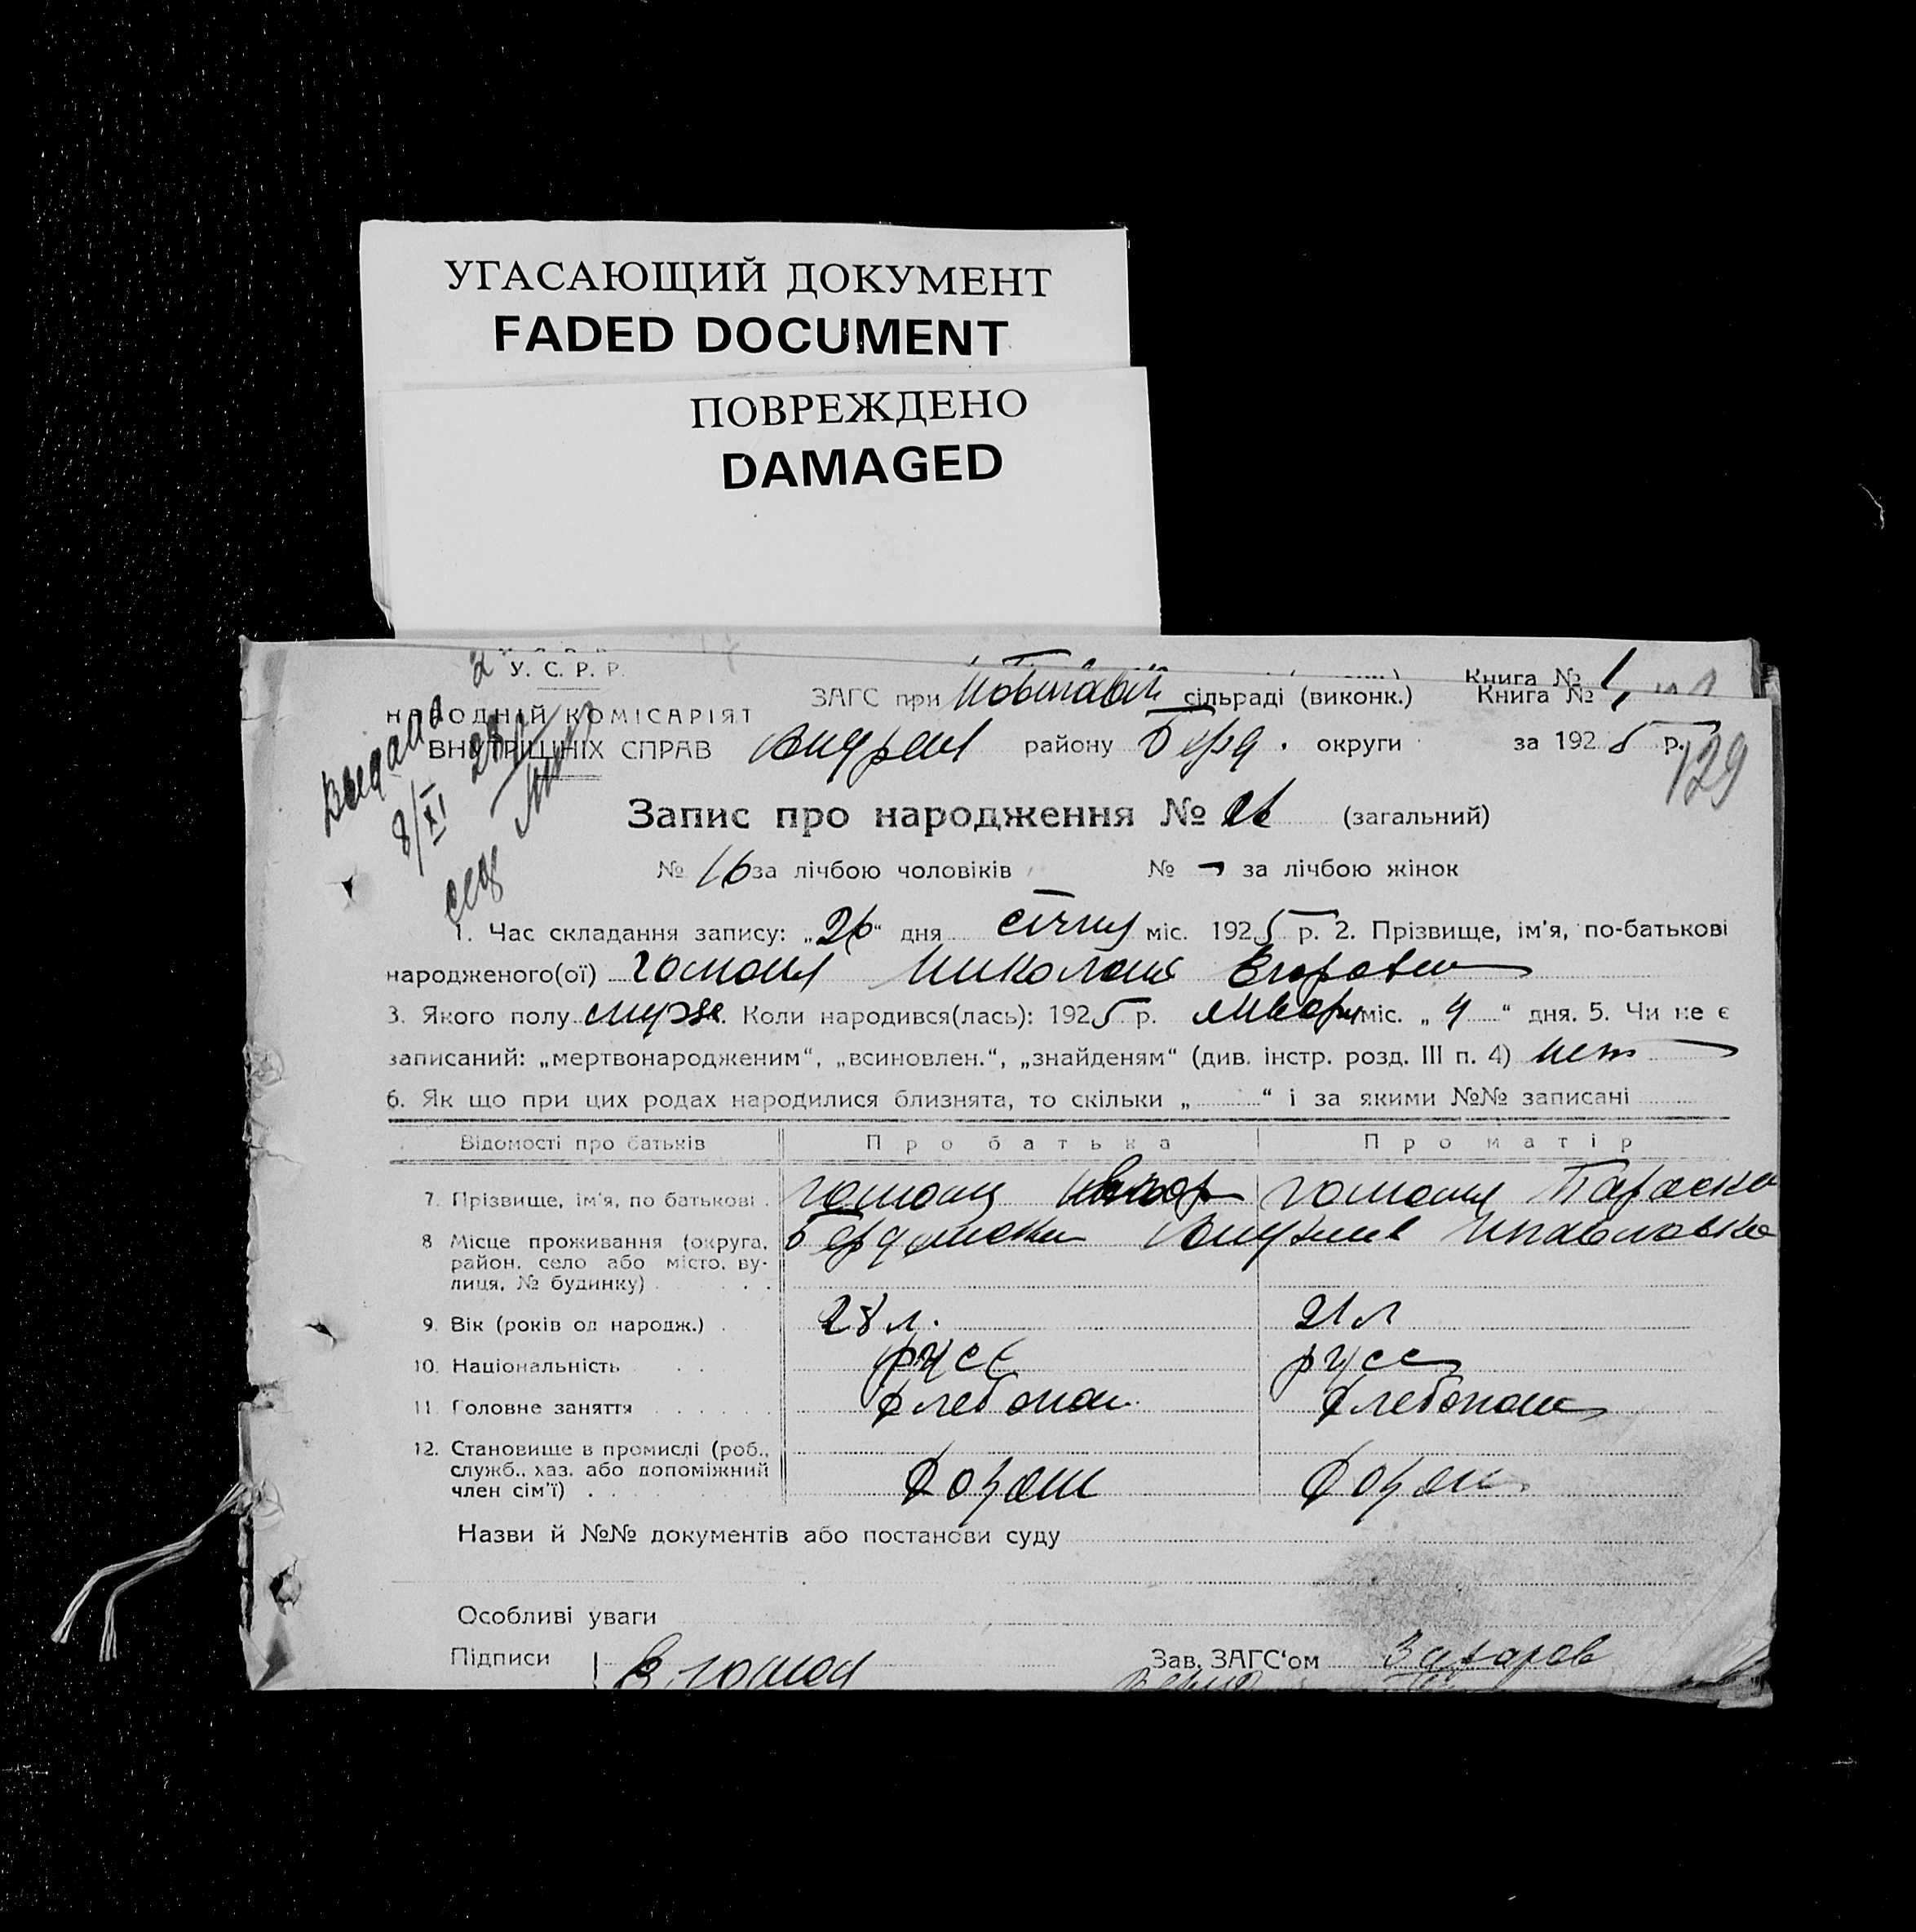 УГАСАЮЩИЙ ДОКУМЕНТ
FADED DOCUMENT
ПОВРЕЖДЕНО
DAMAGED
У. С. Р. Р.
Книга №
ЗАГС при сільраді (виконк.) Книга № 1
НАРОДНІЙ КОМІСАРІЯТ
ВНУТРІШНІХ СПРАВ району Берд. округи за 1925 р.
129
Выдана
8/XI
Запис про народження № 26 (загальний)
№ 16 за лічбою чоловіків № – за лічбою жінок
1. Час складання запису: „26“ дня січня міс. 1925 р. 2. Прізвище, ім'я, по-батькові
народженого(ої) Николай Егорович
3. Якого полу муж. Коли народився(лась): 1925 р. января міс. „4“ дня. 5. Чи не є
записаний: „мертвонародженим“, „всиновлен.“, „знайденям“ (див. інстр. розд. III п. 4) нет
6. Як що при цих родах народилися близнята, то скільки „ “ і за якими №№ записані
Відомості про батьків Про батька Про матір
7. Прізвище, ім'я, по батькові Параска
8 Місце проживання (округа, район, село або місто, вулиця, № будинку)
9. Вік (років од народж.) 28 л. 21 л
10. Національність русс русс
11. Головне заняття хлебопаш. хлебопаш
12. Становище в промислі (роб., служб., хаз. або допоміжний член сім'ї) хозяин хозяин
Назви й №№ документів або постанови суду
Особливі уваги
Підписи Зав. ЗАГС'ом Захаров